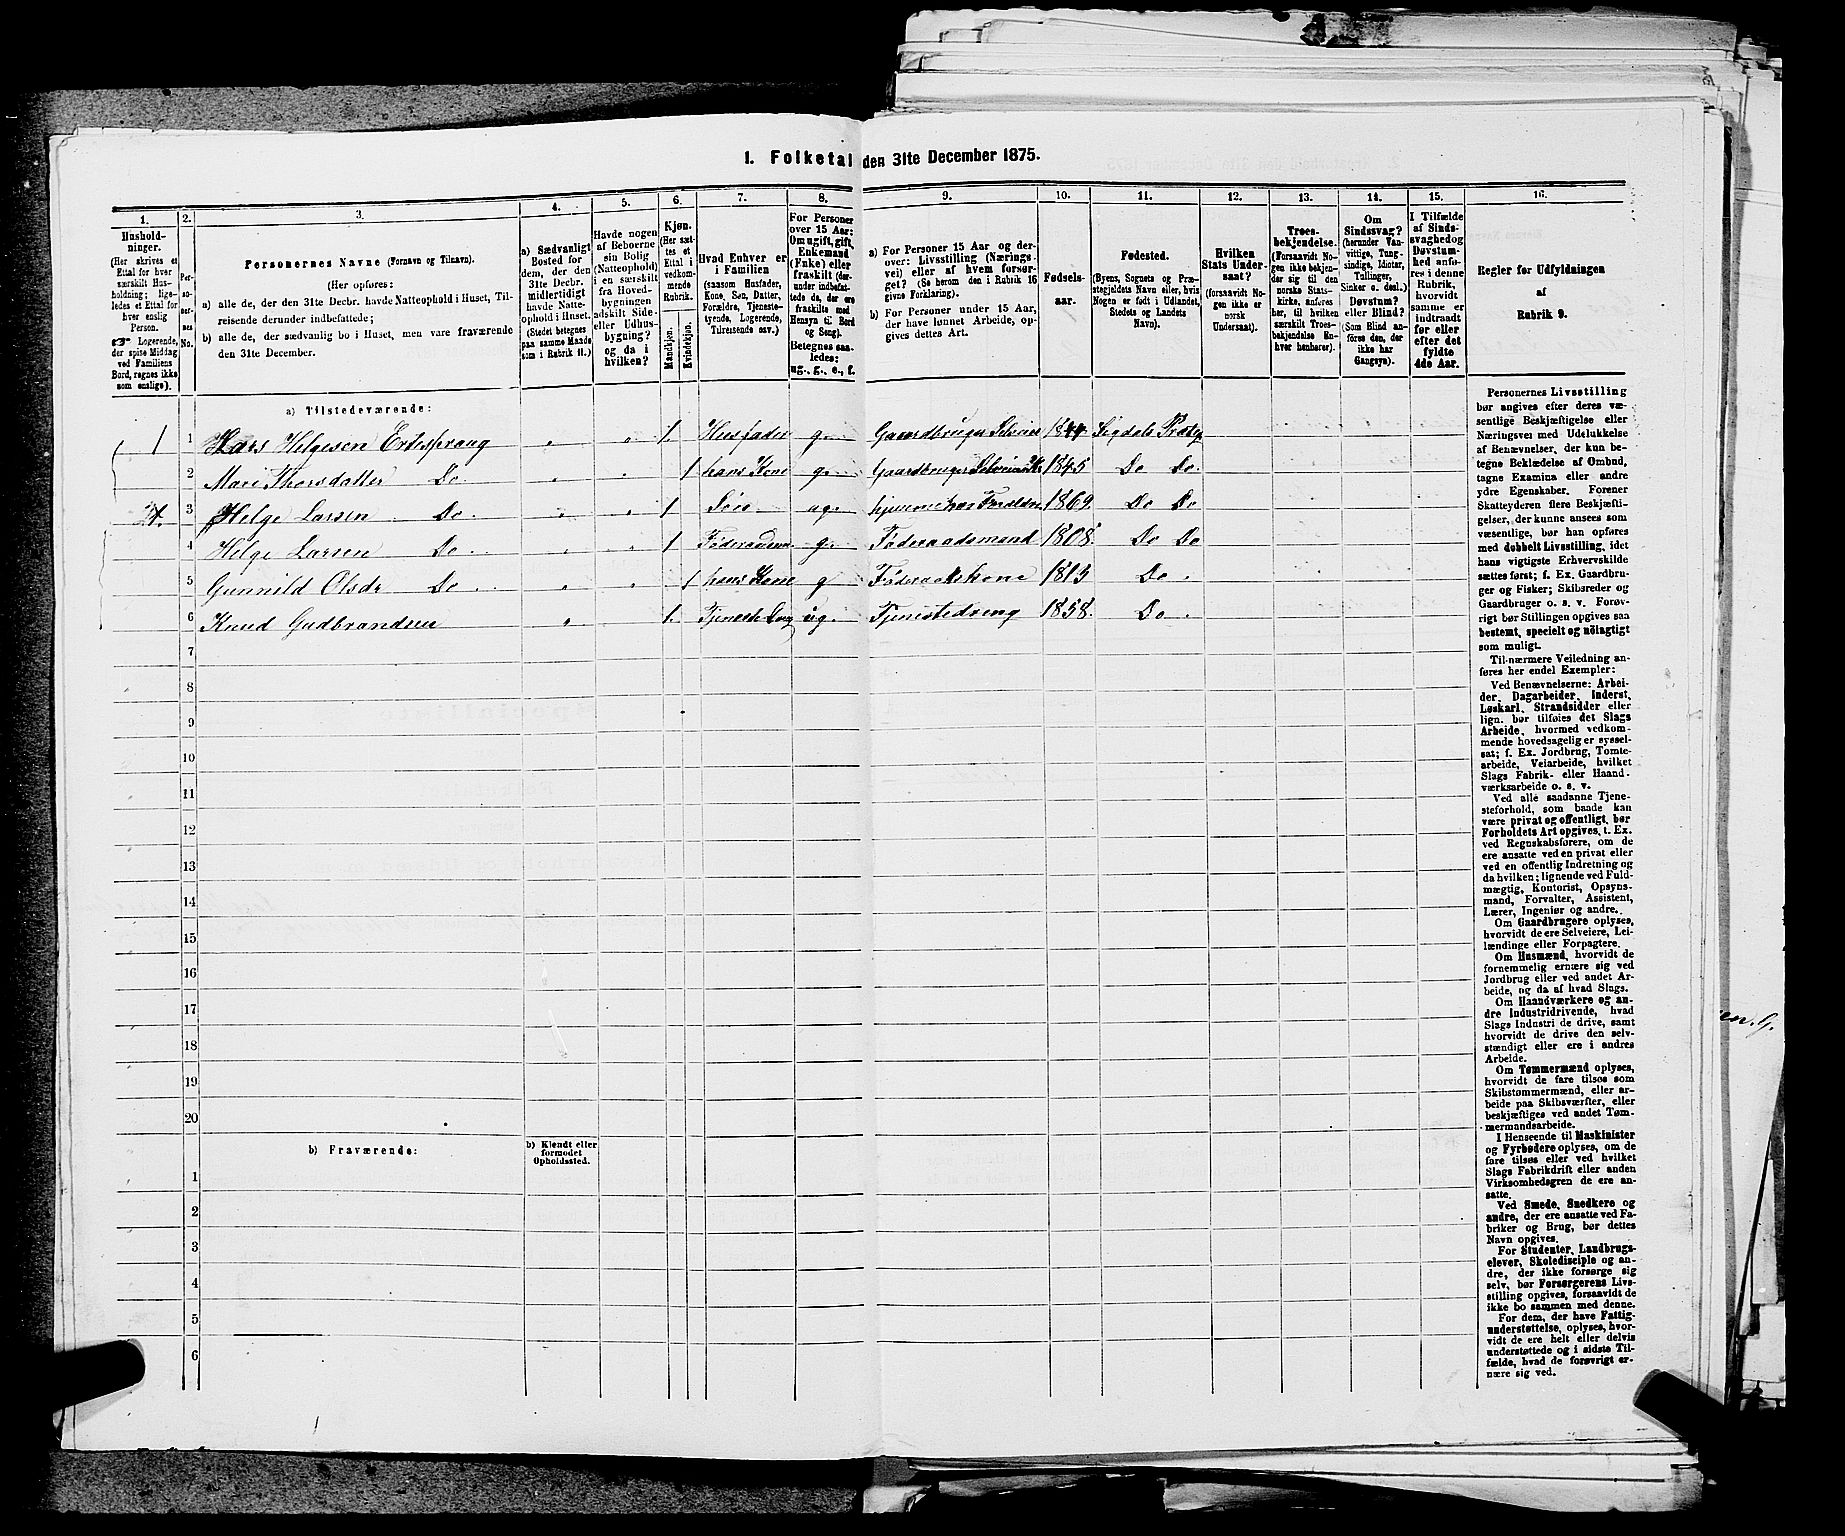 1. Folketal den 31te December 1875.
1. 2. 3. 4. 5. 6. 7. 8. 9. 10. 11. 12. 13. 14. 15. 16.
Hushold-
ninger.
(Her skrives et
Ettal for hver
særskilt Hus-
holdning; lige-
ledes et Ettal for
hver enslig
Person.
Logerende,
der spise Middag
ved Familiens
Bord, regnes ikke
som enslige).
Per-
so-
ner-
nes
No.
Personernes Navne (Fornavn og Tilnavn).
(Her opføres:
a) alle de, der den 31te Decbr. havde Natteophold i Huset, Til-
reisende derunder indbefattede;
b) alle de, der sædvanlig bo i Huset, men vare fraværende
den 31te December.
a) Sædvanligt
Bosted for
dem, der den
31te Decbr.
midlertidigt
havde Natte-
ophold i Huset.
(Stedet betegnes
paa samme Maade
som i Rubrik 11.)
Havde nogen
af Beboerne
sin Bolig
(Natteophold)
i en særskilt
fra Hoved-
bygningen
adskilt Side-
eller Udhus-
bygning?
og da i
hvilken?
Kjøn.
(Her sæt-
tes et
Ettal i
vedkom-
mende
Rubrik.
Mandkjøn.
Kvindekjøn.
Hvad Enhver er
i Familien
(saasom Husfader,
Kone, Søn, Datter,
Forældre, Tjeneste-
tyende, Logerende,
Tilreisende osv.)
For Personer
over 15 Aar:
Om ugift, gift,
Enkemand
(Enke) eller
fraskilt (der-
under indbefat-
tede de, der ere
fraskilte med
Hensyn til Bord
og Seng).
Betegnes saa-
ledes:
ug., g., e., f.
a) For Personer 15 Aar og der-
over: Livsstilling (Nærings-
vei) eller af hvem forsør-
get? (Se herom den i Rubrik 16
givne Forklaring).
b) For Personer under 15 Aar,
der have lønnet Arbeide, op-
gives dettes Art.
Fødsels-
aar.
Fødested.
(Byens, Sognets og Præ-
stegjeldets Navn eller, hvis
Nogen er født i Udlandet,
Stedets og Landets
Navn).
Hvilken
Stats Under-
saat?
(forsaavidt No-
gen ikke er
norsk
Undersaat).
Troes-
bekjendelse.
(Forsaavidt No-
gen ikke bekjen-
der sig til den
norske Stats-
kirke, anføres
her, til hvilken
særskilt Troes-
bekjendelse En-
hver henhører).
Om
Sindssvag?
(herunder Van-
vittige, Tung-
sindige, Idioter,
Tullinger,
Sinker o. desl.)
Døvstum?
eller Blind?
(Som Blind an-
føres den, der
ikke har
Gangsyn).
I Tilfælde
af Sinds-
svaghed og
Døvstum-
hed anfø-
res i denne
Rubrik,
hvorvidt
samme er
indtraadt
før eller
efter det
fyldte
4de Aar.
Regler for Udfyldningen
af
Rubrik 9.
a) Tilstedeværende:
1 1 Helgesen 1. Husfader g. Sigdals
2 Mari Thorsdatter Do. 1 hans Kone g. 1845 Do Do
3 Helge Larsen Do. 1 Søn ug. 1869 Do Do
4 Helge Larsen Do. 1 g. Føderaadsmand 1808 Do Do
5 Gunnild Olsdr Do 1 hans Kone g 1813 Do.
6 Knud Gudbrandsen 1. ug. Tjenestedreng 1858. Do.
7
8
9
10
11
12
13
14
15
16
17
18
19
20
b) Fraværende:
b) Kjendt eller
formodet
Opholdssted.
1
2
3
4
5
6
Personernes Livsstilling
bør angives efter deres væ-
sentlige Beskjæftigelse eller
Næringsvei med Udelukkelse
af Benævnelser, der kun be-
tegne Beklædelse af Ombud,
tagne Examina eller andre
ydre Egenskaber. Forener
Skatteyderen flere Beskjæfti-
gelser, der kunne ansees som
væsentlige, bør han opføres
med dobbelt Livsstilling, idet
hans vigtigste Erhvervskilde
sættes først; f. Ex. Gaardbru-
ger og Fisker; Skibsreder og
Gaardbruger o. s. v. Forøv-
rigt bør Stillingen opgives saa
bestemt, specielt og nöiagtigt
som muligt.
Til nærmere Veiledning an-
føres her endel Exempler:
Ved Benævnelserne: Arbei-
der, Dagarbeider, Inderst,
Løskarl, Strandsidder eller
lign. bør tilføies det Slags
Arbeide, hvormed vedkom-
mende hovedsagelig er syssel-
sat; f. Ex. Jordbrug, Tomte-
arbeide, Veiarbeide, hvilket
Slags Fabrik- eller Haand-
værksarbeide o. s. v.
Ved alle saadanne Tjene-
steforhold, som baade kan
være privat og offentligt, bør
Forholdets Art opgives, t. Ex.
ved Regnskabsførere, om de
ere ansatte ved en privat eller
ved en offentlig Indretning og
da hvilken; lignende ved Fuld-
mægtig, Kontorist, Opsyns-
mand, Forvalter, Assistent,
Lærer, Ingeniør og andre.
Om Gaardbrugere oplyses,
hvorvidt de ere Selveiere, Lei-
lændinge eller Forpagtere.
Om Husmænd, hvorvidt de
fornemmelig ernære sig ved
Jordbrug eller ved andet Ar-
beide, og da af hvad Slags.
Om Haandværkere og an-
dre Industridrivende, hvad
Slags Industri de drive, samt
hvorvidt de drive den selv-
stændigt eller ere i andres
Arbeide.
Om Tømmermænd oplyses,
hvorvidt de fare tilsøs som
Skibstømmermænd, eller ar-
beide paa Skibsværfter, eller
beskjæftiges ved andet Tøm-
mermandsarbeide.
I Henseende til Maskinister
og Fyrbødere oplyses, om de
fare tilsøs eller ved hvilket
Slags Fabrikdrift eller anden
Virksomhedsgren de ere an-
satte.
Ved Smede, Snedkere og
andre, der ere ansatte ved Fa-
briker og Brug, bør dettes
Navn opgives.
For Studenter, Landbrugs-
elever, Skoledisciple og an-
dre, der ikke forsørge sig
selv, bør Forsørgerens Livs-
stilling opgives, forsaavidt de
ikke bo sammen med denne.
For dem, der have Fattig-
understøttelse, oplyses, hvor-
vidt de ere helt eller delvis
understøttede og i sidste Til-
fælde, hvad de forøvrigt er-
nære sig ved.